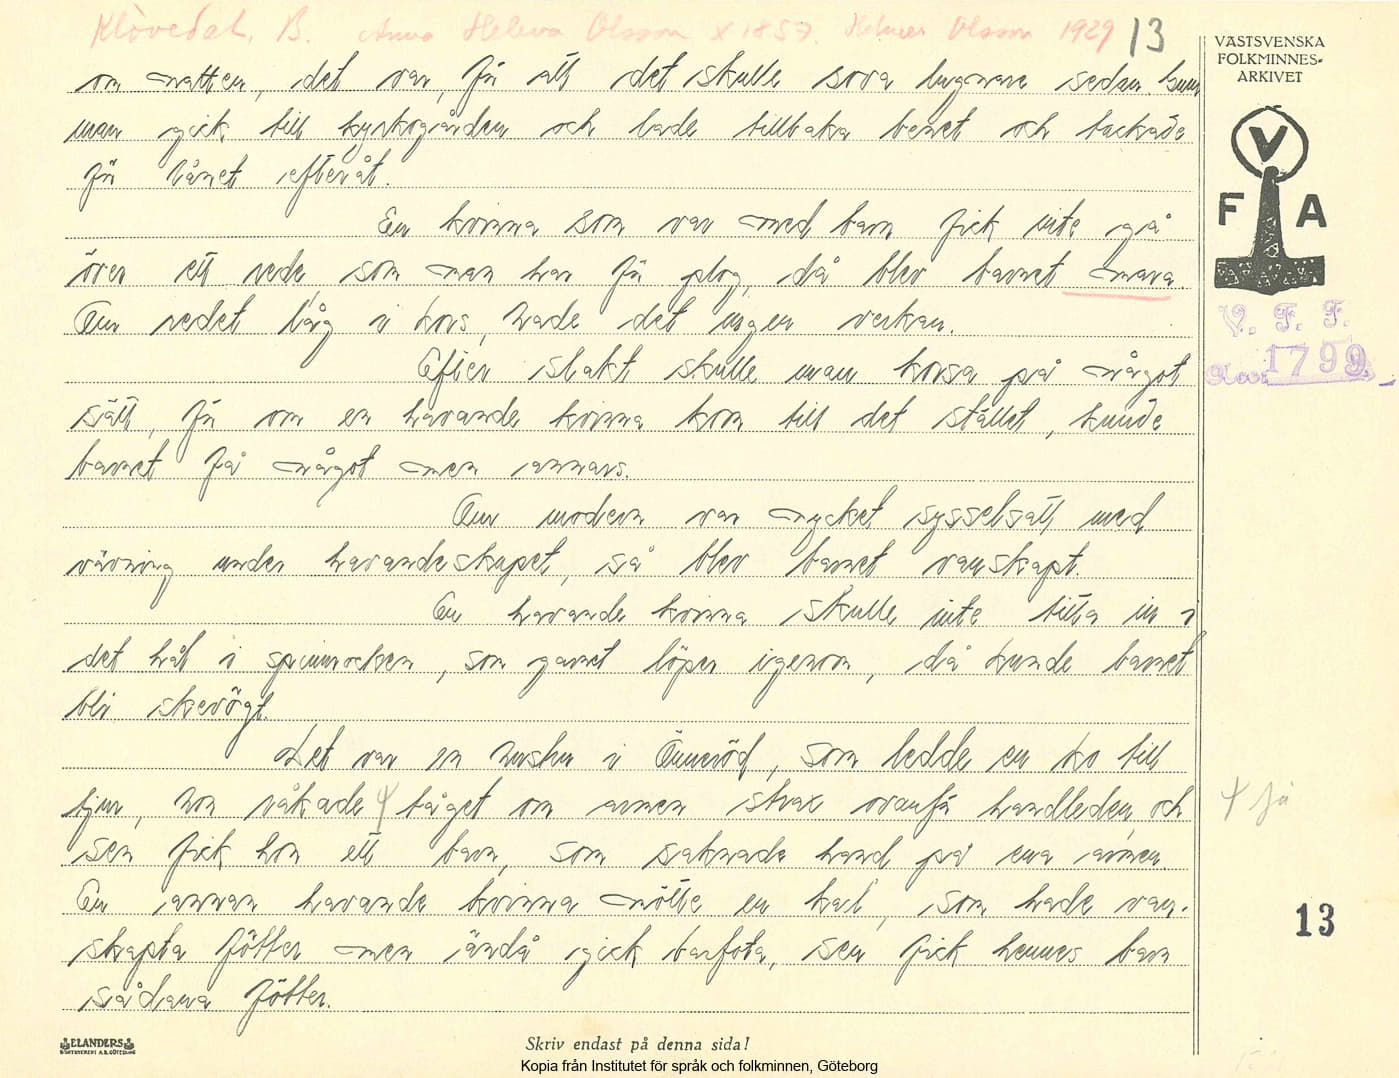 Klövedal, B. Anna Helena Olsson x 1857. Helmer Olsson 1929 13
VÄSTSVENSKA
FOLKMINNES-
ARKIVET
om natten, det var för att det skulle sova lugnare sedan. Sum
man gick till kyrkogården och lade tillbaka benet och tackade
för lånet efteråt.
En kvinna som var med barn fick inte gå
över ett rede, som man har för plog, då blev barnet mara.
Om redet låg i kors, hade det ingen verkan.
Efter slakt skulle man korsa på något
sätt, för om en havande kvinna kom till det stället, kunde
barnet få något men annars.
Om modern var mycket sysselsatt med
vävning under havandeskapet, så blev barnet vanskapt.
En havande kvinna skulle inte titta in i
det hål i spinnrocken, som garnet löper igenom, då kunde barnet
bli skevögt.
Det var en hustru i Änneröd, som ledde en ko till
tjur, hon råkade ψ tåget om armen strax ovanför handleden, och
sen fick hon ett barn, som saknade hand på ena armen.
En annan havande kvinna mötte en karl, som hade van-
skapta fötter men ändå gick barfota, sen fick hennes barn
sådana fötter.
V F A
V. F. F.
1799
ψ få
13
ELANDERS
BOKTRYCKERI A.B. GÖTEBORG
Skriv endast på denna sida!
Kopia från Institutet för språk och folkminnen, Göteborg